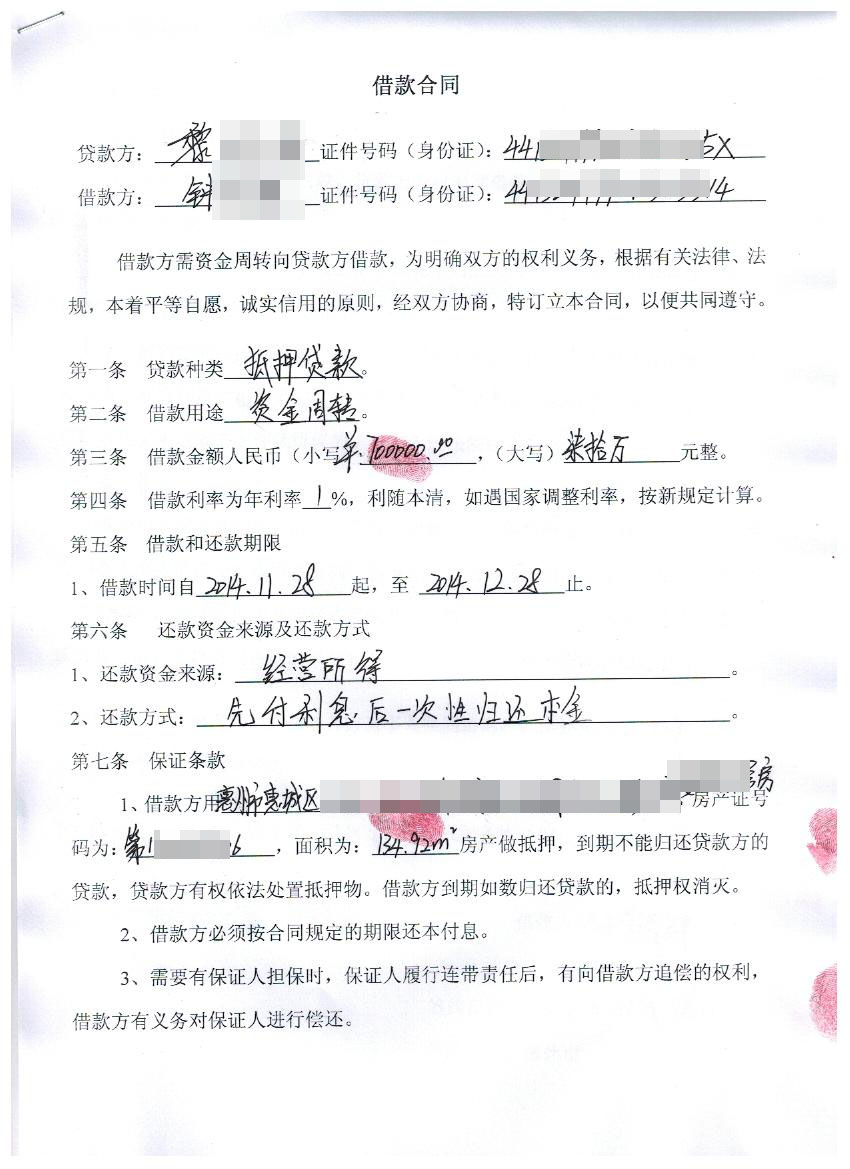 借款合同
贷款方：黎 证件号码（身份证）：441 5X
借款方：钟 证件号码（身份证）：441 14
借款方需资金周转向贷款方借款，为明确双方的权利义务，根据有关法律、法
规，本着平等自愿，诚实信用的原则，经双方协商，特订立本合同，以便共同遵守。
第一条 贷款种类 抵押贷款。
第二条 借款用途 资金周转。
第三条 借款金额人民币（小写 700000.00 ，（大写）柒拾万 元整。
第四条 借款利率为年利率 1 %，利随本清，如遇国家调整利率，按新规定计算。
第五条 借款和还款期限
1、借款时间自 2014.11.28 起，至 2014.12.28 止。
第六条 还款资金来源及还款方式
1、还款资金来源：经营所得。
2、还款方式：先付利息后一次性归还本金。
第七条 保证条款
1、借款方用惠州市惠城区 房 房产证号
码为：第1 6 ，面积为：134.92m²房产做抵押，到期不能归还贷款方的
贷款，贷款方有权依法处置抵押物。借款方到期如数归还贷款的，抵押权消灭。
2、借款方必须按合同规定的期限还本付息。
3、需要有保证人担保时，保证人履行连带责任后，有向借款方追偿的权利，
借款方有义务对保证人进行偿还。